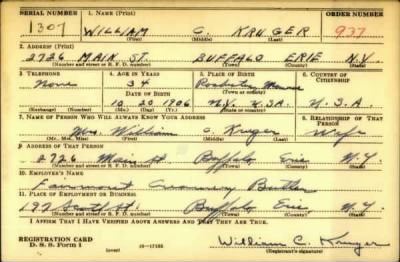 SERIAL NUMBER 1. NAME (Print) ORDER NUMBER
1307 WILLIAM C. KRUGER 937
(First) (Middle) (Last)
2. ADDRESS (Print)
2726 MAIN ST. BUFFALO ERIE N.Y.
(Number and street or R. F. D. number) (Town) (County) (State)
3. TELEPHONE 4. AGE IN YEARS 5. PLACE OF BIRTH 6. COUNTRY OF CITIZENSHIP
None 34 Rochester Monroe
DATE OF BIRTH (Town) (County)
10 20 1906 N.Y. U.S.A. U.S.A.
(Exchange) (Number) (Mo.) (Day) (Yr.) (State or country)
7. NAME OF PERSON WHO WILL ALWAYS KNOW YOUR ADDRESS 8. RELATIONSHIP OF THAT PERSON
Mrs. William C. Kruger Wife
(Mr., Mrs., Miss) (First) (Middle) (Last)
9. ADDRESS OF THAT PERSON
2726 Main St Buffalo Erie N.Y.
(Number and street or R. F. D. number) (Town) (County) (State)
10. EMPLOYER'S NAME
Fairmont Creamery
11. PLACE OF EMPLOYMENT OR BUSINESS
197 Scott St. Buffalo Erie N.Y.
(Number and street or R. F. D. number) (Town) (County) (State)
I AFFIRM THAT I HAVE VERIFIED ABOVE ANSWERS AND THAT THEY ARE TRUE.
REGISTRATION CARD
D. S. S. Form 1 (over) 16—17105 William C. Kruger
(Registrant's signature)